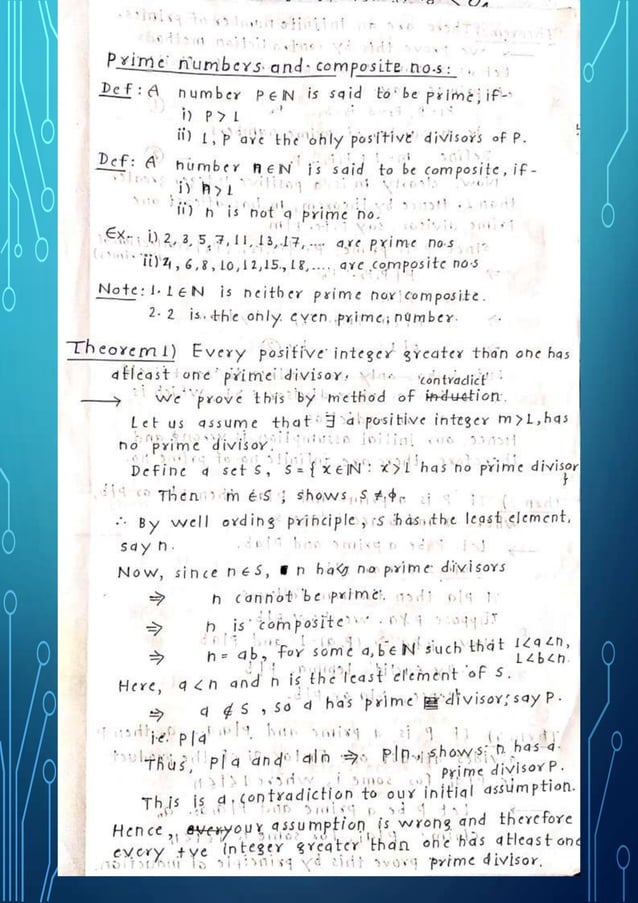 Prime numbers and composite no.s:
Def: A number P∈ℕ is said to be prime, if-
i) P>1
ii) 1, P are the only positive divisors of P.
Def: A number n∈ℕ is said to be composite, if-
i) n>1
ii) n is not a prime no.
Ex. i) 2, 3, 5, 7, 11, 13, 17, .... are prime no.s
ii) 4, 6, 8, 10, 12, 15, 18, .... are composite no.s
Note: 1. 1∈ℕ is neither prime nor composite.
2. 2 is the only even prime number.
Theorem 1) Every positive integer greater than one has
atleast one prime divisor.
contradict
→ We prove this by method of induction.
Let us assume that ∃ a positive integer m>1, has
no prime divisor
Define a set S, S = { x∈ℕ : x>1 has no prime divisor
}
Then m∈S ; shows S≠ϕ
∴ By well ording principle, S has the least element,
say n.
Now, since n∈S, n has no prime divisors
⇒ n cannot be prime.
⇒ n is composite
⇒ n = ab, for some a,b∈ℕ such that 1<a<n,
1<b<n.
Here, a<n and n is the least element of S.
⇒ a∉S, so a has prime divisor, say P.
i.e. P|a
Thus, P|a and a|n ⇒ P|n, shows n has a
prime divisor P.
This is a contradiction to our initial assumption.
Hence, every our assumption is wrong and therefore
every +ve integer greater than one has atleast one
prime divisor.